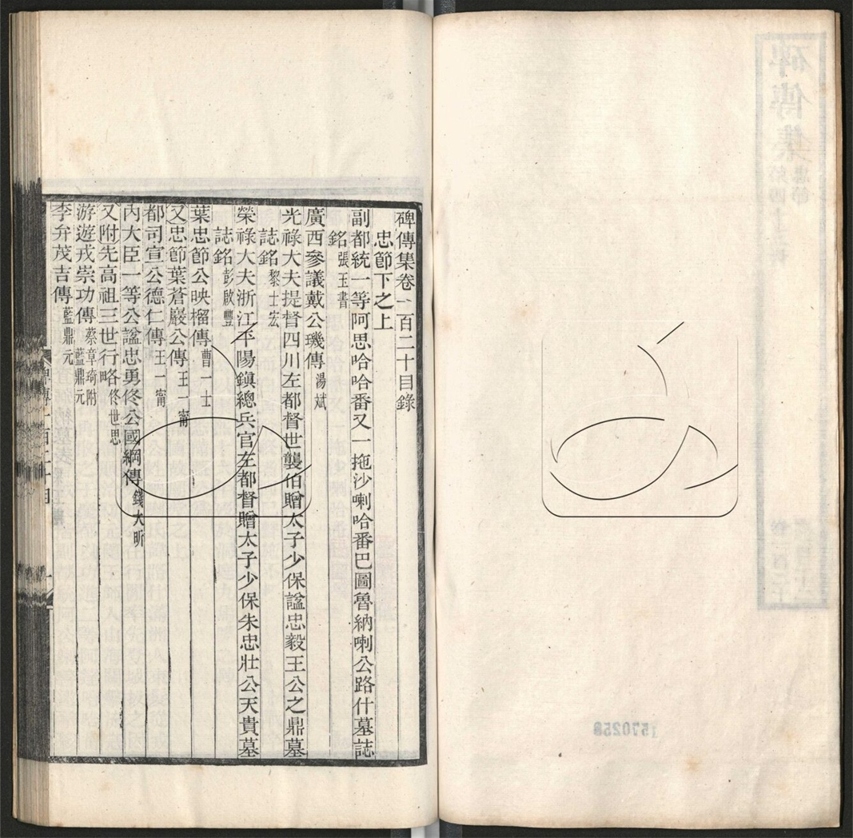 碑傳集卷一百二十目錄
忠節下之上
副都統一等阿思哈哈番又一拖沙喇哈番巴圖魯納喇公路什墓誌
銘 張玉書
廣西參議戴公璣傳 湯斌
光祿大夫提督四川左都督世襲伯贈太子少保諡忠毅王公之鼎墓
誌銘 黎士宏
榮祿大夫浙江平陽鎮總兵官左都督贈太子少保朱忠壯公天貴墓
誌銘 彭啟豐
葉忠節公映榴傳 曹一士
又忠節葉蒼巖公傳 王一甯
都司宣公德仁傳 王一甯
內大臣一等公諡忠勇佟公國綱傳 錢大昕
又附先高祖三世行略 佟世思
游遊戎崇功傳 蔡章琦附 藍鼎元
李弁茂吉傳 藍鼎元